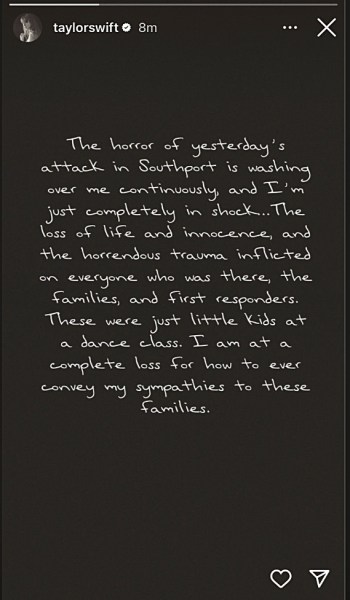 taylorswift 8m
The horror of yesterday's
attack in Southport is washing
over me continuously, and I'm
just completely in shock...The
loss of life and innocence, and
the horrendous trauma inflicted
on everyone who was there, the
families, and first responders.
These were just little kids at
a dance class. I am at a
complete loss for how to ever
convey my sympathies to these
families.